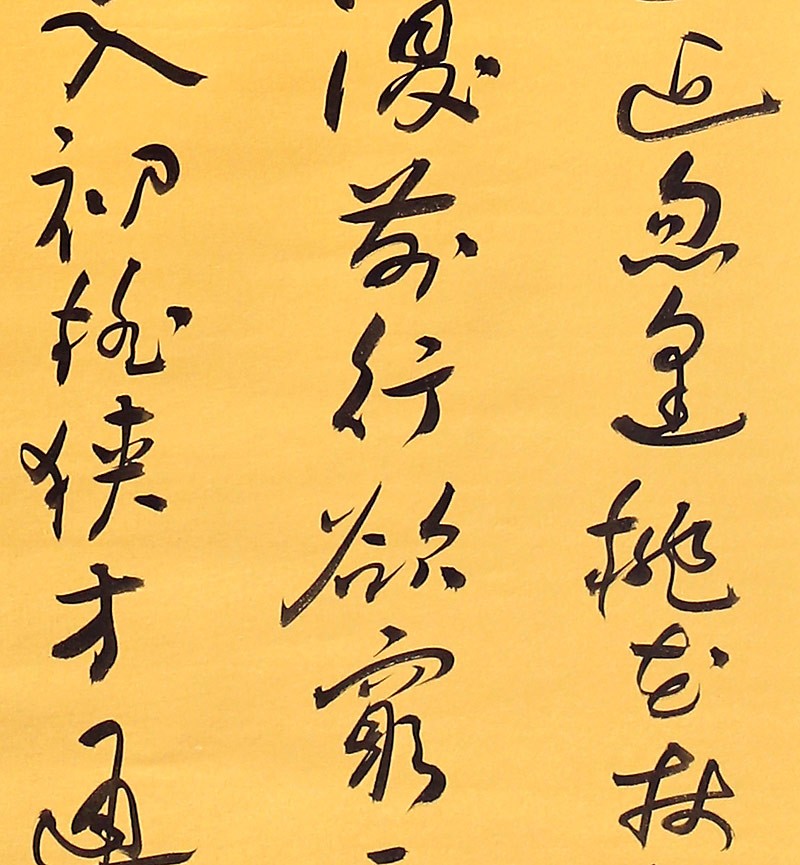 近忽逢桃花林
復前行欲窮
入初極狹才通